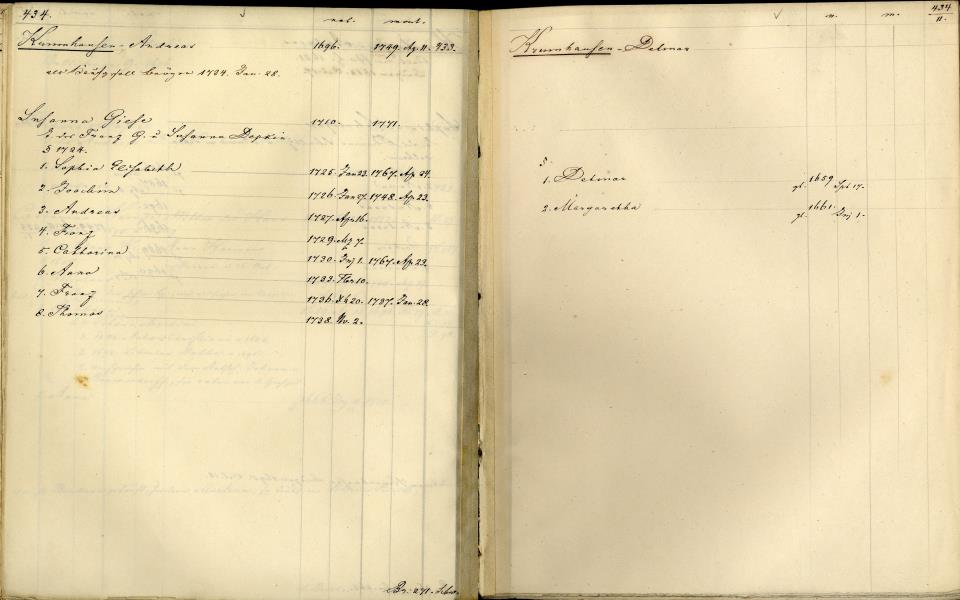 434.
nat. mort.
Krumhausen - Andreas 1696. 1749. Ap. 11. 433.
als Kaufgesell bürger 1724. Jan. 28.
Susanna Giese 1710. 1771.
T. des Franz G. u Susanna Depkin
§ 1724.
1. Sophia Elisabeth 1725. Jan 23. 1767. Ap. 24.
2. Joachim 1726. Jan 27. 1748. Ap. 23.
3. Andreas 1727. Apr 16.
4. Franz 1729. Mz 7.
5. Catharina 1730. 1. 1767. Ap. 23.
6. Anna 1733. 10.
7. Franz 1736. Xb 20. 1737. Jan. 28.
8. Thomas 1738. Nv. 2.
Br. 271.
434
11.
n. m.
Krumhausen - Detmar
§.
1. Detmar gt. 1659. Spt 17.
2. Margaretha gt. 1661. 1.